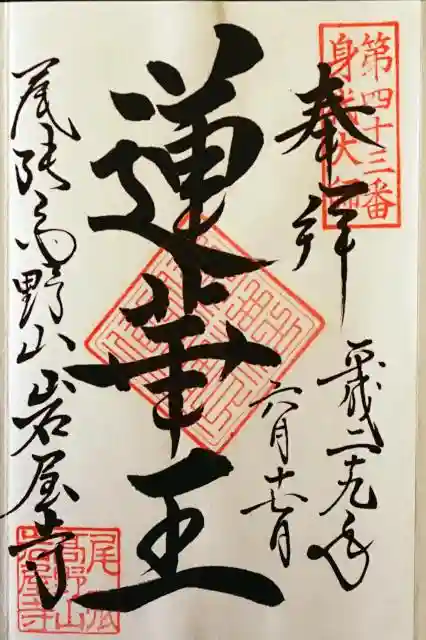 第四十三番
身代大師
奉拝
平成二十九年
六月十七日
蓮華王
尾張高野山岩屋寺
尾張
高野山
岩屋寺